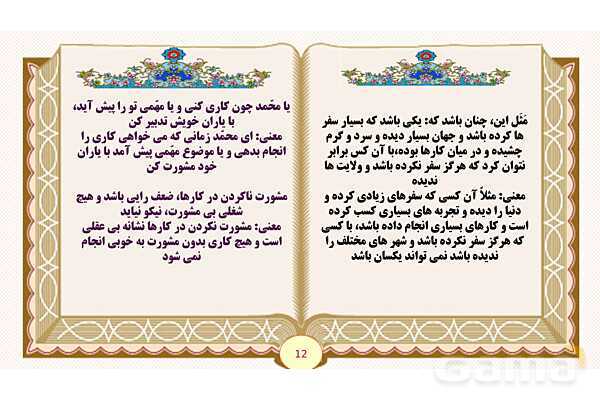 مَثَل این، چنان باشد که: یکی باشد که بسیار سفر
ها کرده باشد و جهان بسیار دیده و سرد و گرم
چشیده و در میان کارها بوده،با آن کس برابر
نتوان کرد که هرگز سفر نکرده باشد و ولایت ها
ندیده
معنی: مثلاً آن کسی که سفرهای زیادی کرده و
دنیا را دیده و تجربه های بسیاری کسب کرده
است و کارهای بسیاری انجام داده باشد، با کسی
که هرگز سفر نکرده باشد و شهر های مختلف را
ندیده باشد نمی تواند یکسان باشد
یا محّمد چون کاری کنی و یا مهّمی تو را پیش آید،
با یاران خویش تدبیر کن
معنی: ای محمّد زمانی که می خواهی کاری را
انجام بدهی و یا موضوع مهّمی پیش آمد با یاران
خود مشورت کن
مشورت ناکردن در کارها، ضعف رایی باشد و هیچ
شغلی بی مشورت، نیکو نیاید
معنی: مشورت نکردن در کارها نشانه بی عقلی
است و هیچ کاری بدون مشورت به خوبی انجام
نمی شود
12
Gama